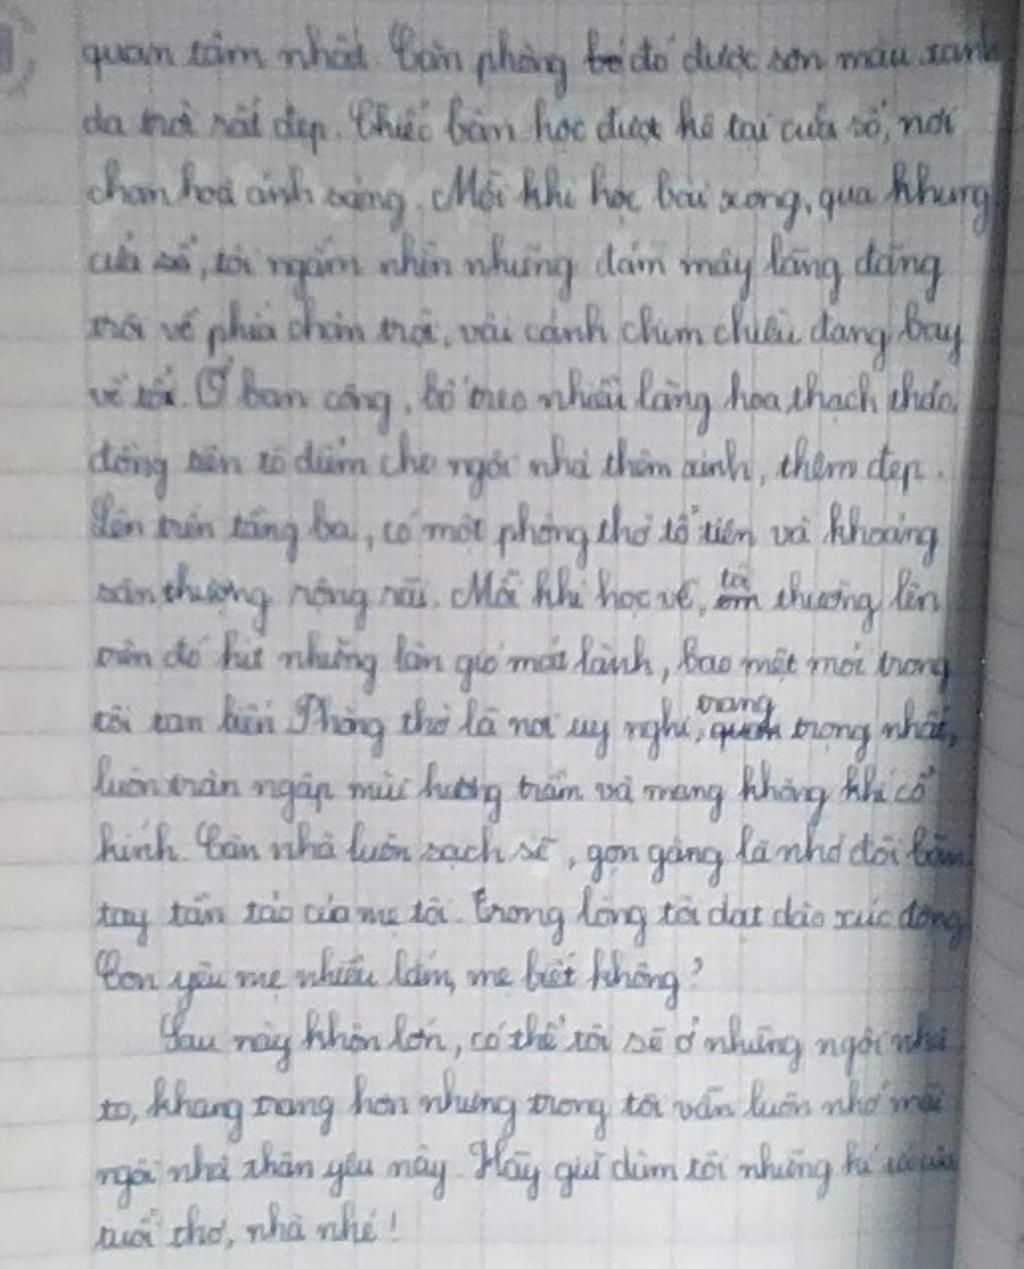 quan tâm nhất. Căn phòng đó được sơn màu xanh
da trời rất đẹp. Chiếc bàn học được kê tại cửa sổ, nơi
chan hoà ánh sáng. Mỗi khi học bài xong, qua khung
cửa sổ, tôi ngắm nhìn những đám mây lãng đãng
trôi về phía chân trời, vài cánh chim chiều đang bay
về tổ. Ở ban công, bố treo nhiều lẵng hoa thạch thảo,
tô điểm cho ngôi nhà thêm xinh, thêm đẹp.
Lên trên tầng ba, có một phòng thờ tổ tiên và khoảng
sân thượng rộng rãi. Mỗi khi học về, tôi thường lên
trên đó hít những làn gió mát lành, bao mệt mỏi trong
tôi tan biến. Phòng thờ là nơi uy nghi, trang trọng nhất,
luôn tràn ngập mùi hương trầm và mang không khí cổ
kính. Căn nhà luôn sạch sẽ, gọn gàng là nhờ đôi bàn
tay tần tảo của mẹ tôi. Trong lòng tôi dạt dào xúc động
Con yêu mẹ nhiều lắm, mẹ biết không?
Sau này khôn lớn, có thể tôi sẽ ở những ngôi nhà
to, khang trang hơn nhưng trong tôi vẫn luôn nhớ mãi
ngôi nhà thân yêu này. Hãy giữ dùm tôi những kí ức
tuổi thơ, nhà nhé!